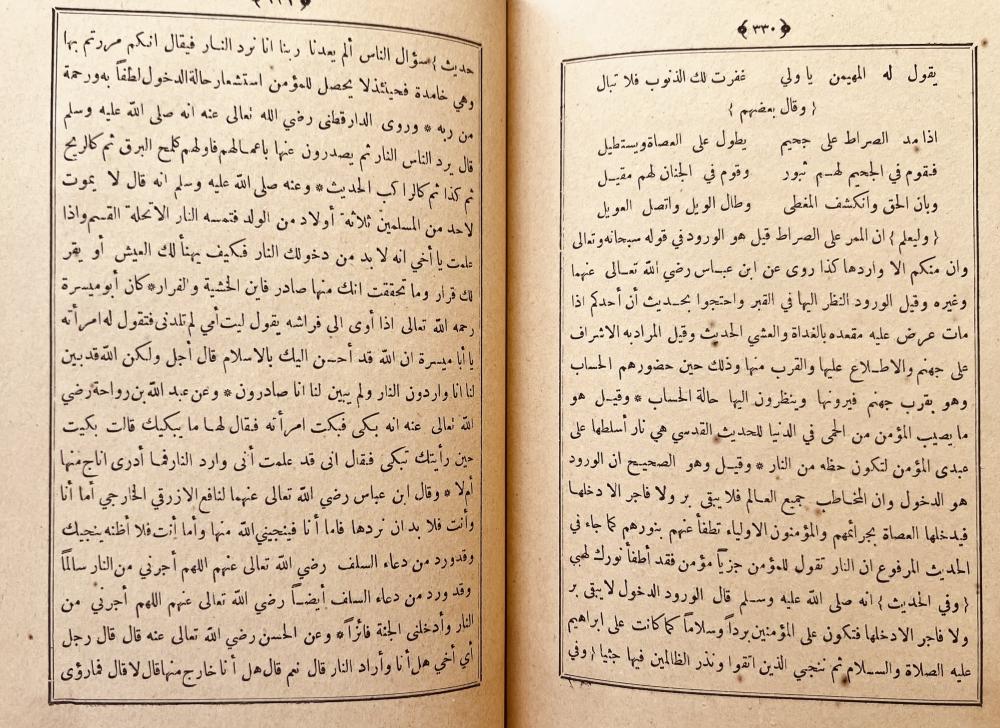 ﴿٣٣٠﴾
يقول له المهيمن يا ولي غفرت لك الذنوب فلا تبال
﴿ وقال بعضهم ﴾
اذا مد الصراط على جحيم يطول على العصاة ويستطيل
فقوم في الجحيم لهم ثبور وقوم في الجنان لهم مقيل
وبان الحق وانكشف المغطى وطال الويل واتصل العويل
﴿ وليعلم ﴾ ان الممر على الصراط قيل هو الورود في قوله سبحانه وتعالى
وان منكم الا واردها كذا روى عن ابن عباس رضي الله تعالى عنهما
وغيره وقيل الورود النظر اليها في القبر واحتجوا بحديث أن أحدكم اذا
مات عرض عليه مقعده بالغداة والعشي الحديث وقيل المراد به الاشراف
على جهنم والاطلاع عليها والقرب منها وذلك حين حضورهم الحساب
وهو بقرب جهنم فيرونها وينظرون اليها حالة الحساب * وقيل هو
ما يصيب المؤمن من الحمى في الدنيا للحديث القدسي هي نار أسلطها على
عبدى المؤمن لتكون حظه من النار * وقيل وهو الصحيح ان الورود
هو الدخول وان المخاطب جميع العالم فلا يبقى بر ولا فاجر الا دخلها
فيدخلها العصاة بجرائمهم والمؤمنون الاولياء تطفأ عنهم بنورهم كما جاء في
الحديث المرفوع ان النار تقول للمؤمن جز يا مؤمن فقد أطفأ نورك لهبي
﴿ وفي الحديث ﴾ انه صلى الله عليه وسلم قال الورود الدخول لا يبقى بر
ولا فاجر الا دخلها فتكون على المؤمنين برداً وسلاماً كما كانت على ابراهيم
عليه الصلاة والسلام ثم ننجي الذين اتقوا ونذر الظالمين فيها جثيا ﴿ وفي
حديث ﴾ سؤال الناس ألم يعدنا ربنا انا نرد النار فيقال انكم مررتم بها
وهي خامدة فحينئذ لا يحصل للمؤمن استشعار حالة الدخول لطفاً به ورحمة
من ربه * وروى الدارقطنى رضي الله تعالى عنه انه صلى الله عليه وسلم
قال يرد الناس النار ثم يصدرون عنها باعمالهم فاولهم كلمح البرق ثم كالريح
ثم كذا ثم كالراكب الحديث * وعنه صلى الله عليه وسلم انه قال لا يموت
لاحد من المسلمين ثلاثة أولاد من الولد فتمسه النار الا تحلة القسم واذا
علمت يا أخي انه لا بد من دخولك النار فكيف يهنأ لك العيش أو يقر
لك قرار وما تحققت انك منها صادر فاين الخشية والفرار * كان أبو ميسرة
رحمه الله تعالى اذا أوى الى فراشه يقول ليت أمي لم تلدنى فتقول له امرأته
يا أبا ميسرة ان الله قد أحسن اليك بالاسلام قال أجل ولكن الله قد بين
لنا انا واردون النار ولم يبين لنا انا صادرون * وعن عبد الله بن رواحة رضي
الله تعالى عنه انه بكى فبكت امرأته فقال لها ما يبكيك قالت بكيت
حين رأيتك تبكى فقال انى قد علمت أنى وارد النار فما أدرى اناج منها
أم لا * وقال ابن عباس رضي الله تعالى عنهما لنافع الازرقي الخارجي أما أنا
وأنت فلا بد ان نردها فاما أنا فينجيني الله منها وأما أنت فلا أظنه ينجيك
وقد ورد من دعاء السلف رضي الله تعالى عنهم اللهم أجرني من النار سالماً
وقد ورد من دعاء السلف أيضاً رضي الله تعالى عنهم اللهم أجرني من
النار وأدخلنى الجنة فائزاً * وعن الحسن رضي الله تعالى عنه قال قال رجل
أي أخي هل أنا وأراد النار قال نعم قال هل أنا خارج منها قال لا قال فما رؤى